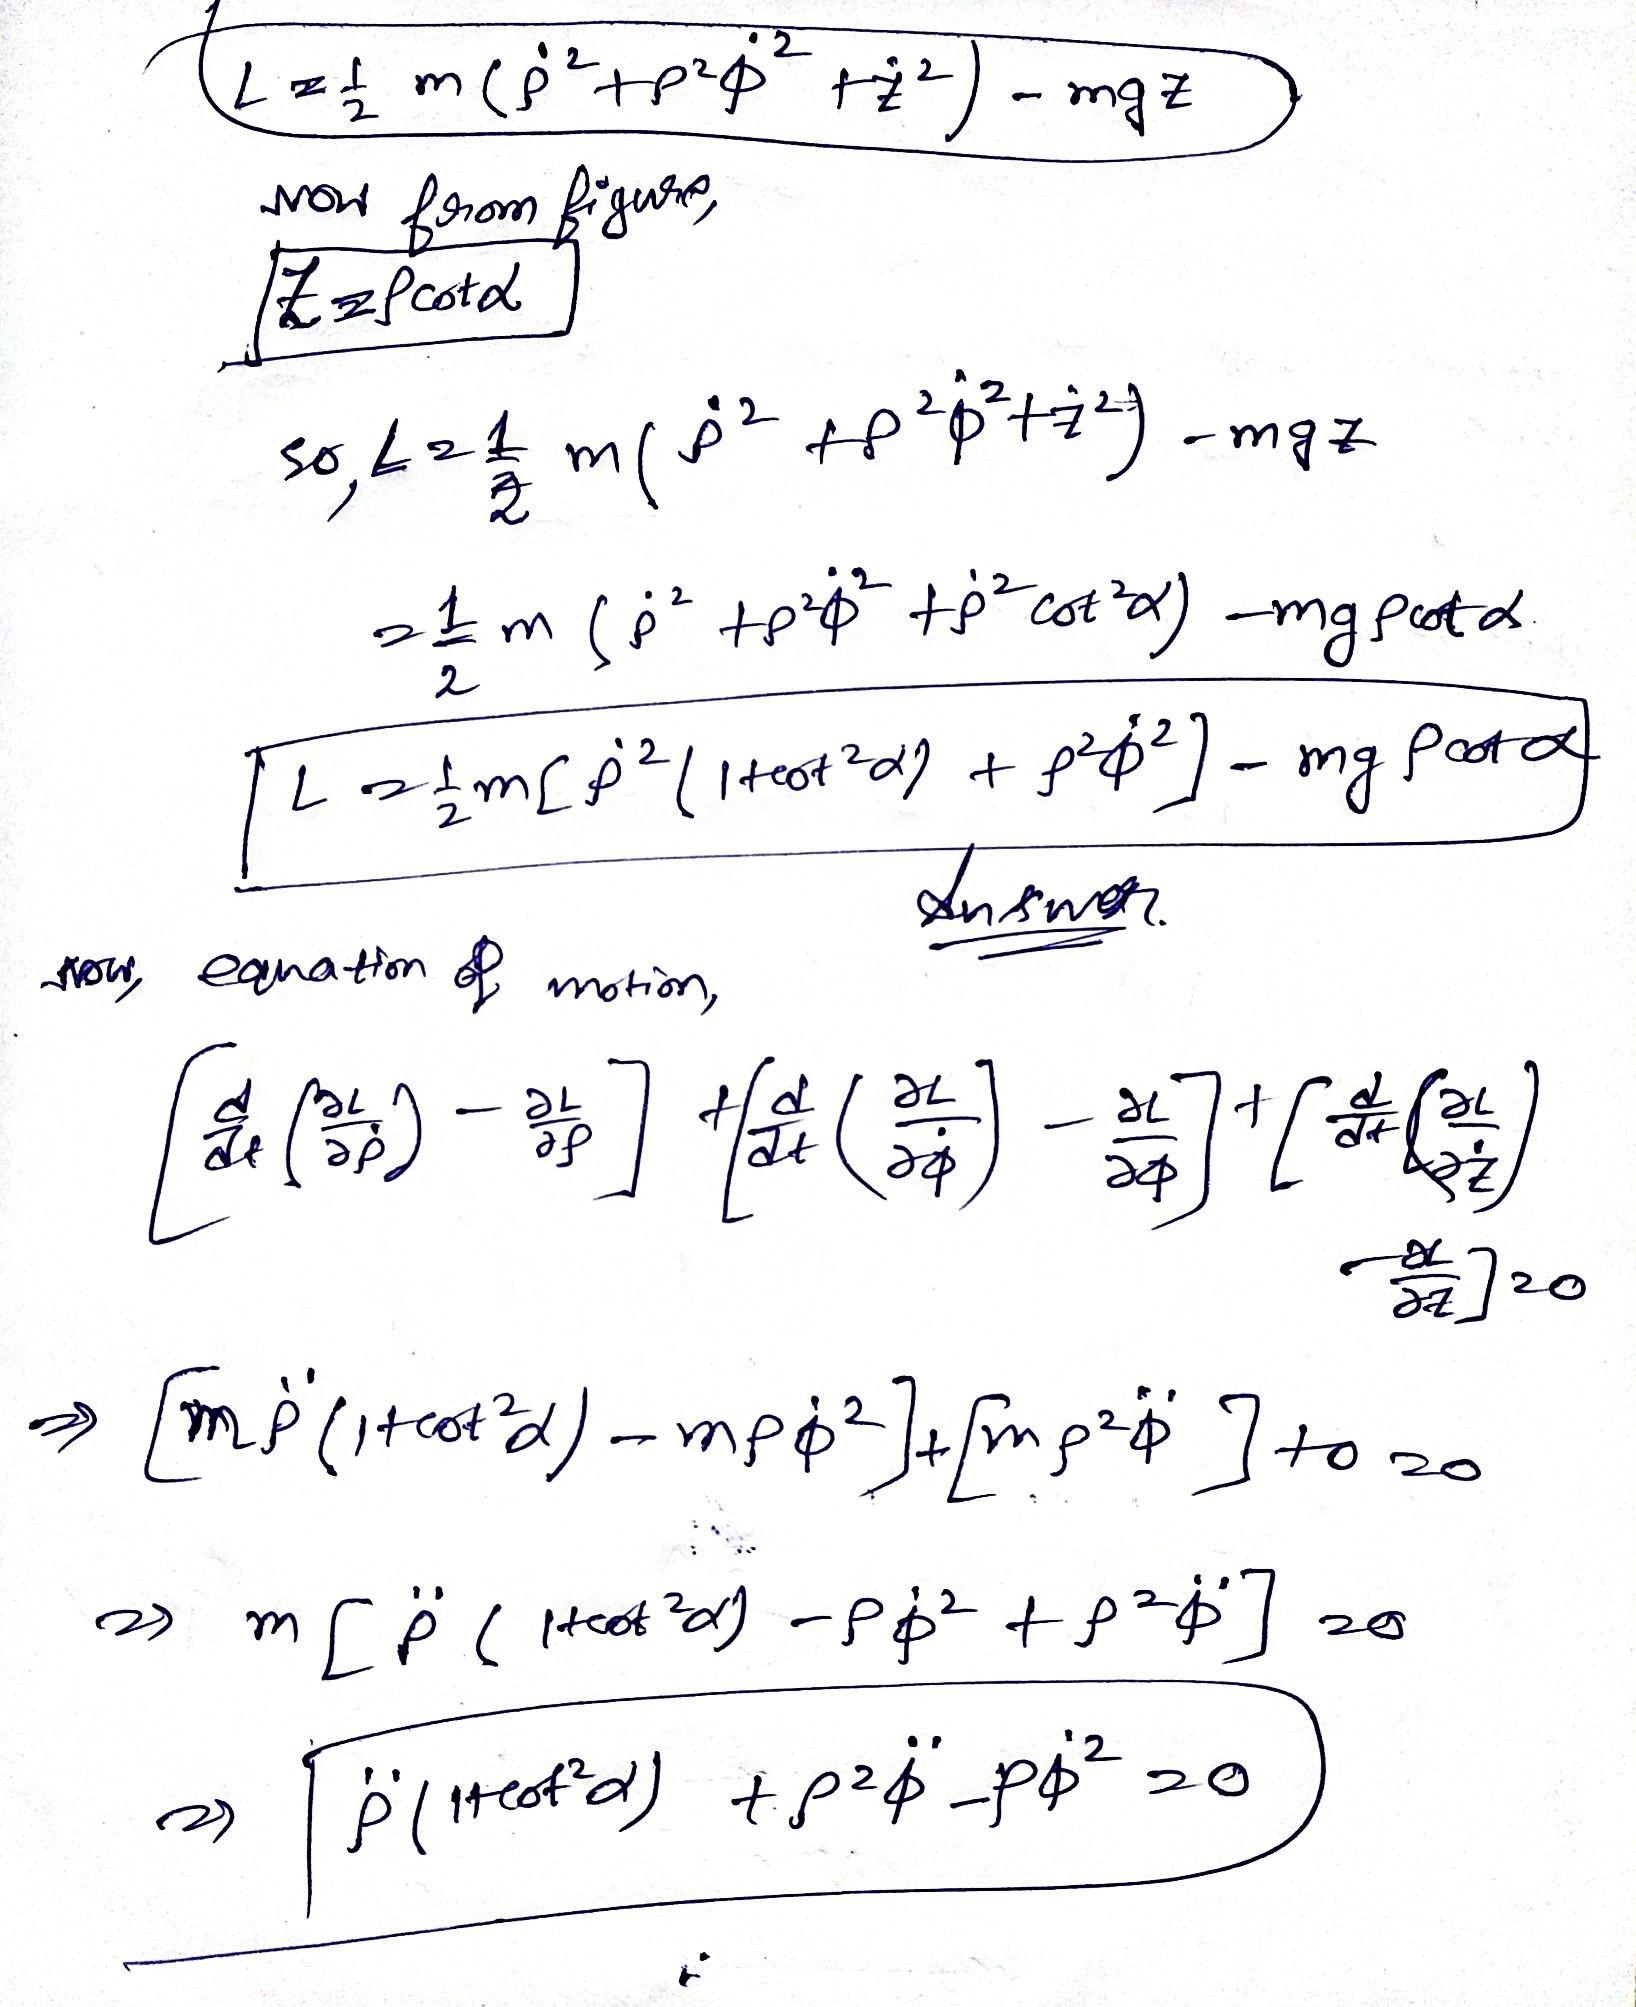 L = 1/2 m (ρ̇² + ρ²ϕ̇² + ż²) - mgz
Now from figure,
Z = ρcotα
so, L = 1/2 m (ρ̇² + ρ²ϕ̇² + ż²) - mgz
= 1/2 m (ρ̇² + ρ²ϕ̇² + ρ̇² cot²α) - mgρcotα.
L = 1/2 m [ρ̇² (1+cot²α) + ρ²ϕ̇²] - mg ρcotα
Answer.
Now, equation of motion,
[d/dt (∂L/∂ρ̇) - ∂L/∂ρ] + [d/dt (∂L/∂ϕ̇) - ∂L/∂ϕ] + [d/dt (∂L/∂ż)
- ∂L/∂z] = 0
⇒ [mρ̈ (1+cot²α) - mρϕ̇²] + [mρ²ϕ̈] + 0 = 0
⇒ m [ρ̈ (1+cot²α) - ρϕ̇² + ρ²ϕ̈] = 0
⇒ ρ̈ (1+cot²α) + ρ²ϕ̈ - ρϕ̇² = 0